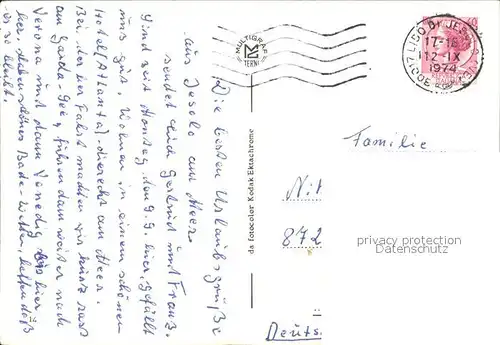 Die besten Urlaubsgrüße
aus Jesolo am Meer
sendet Euch Gertrud und Franz.
Sind seit Montag, den 9.9. hier, gefällt
uns gut, Wohnen in einem schönen
Hotel (Atlanta) direckt am Meer.
Bei der her Fahrt machten wir kurz rast
am Garda-See, fuhren dann weiter nach
Verona und dann Venedig bis hier
her. Bade-Wetter, hoffen daß
es so bleibt.
MULTIGRAF
TERNI
da fotocolor Kodak Ektachrome
30017 LIDO DI JESOLO
17-18
12-IX
1974
40
Familie
Nit
872
Deuts
privacy protection
VEREMARK